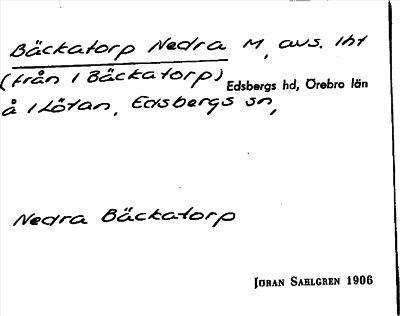 Bäckatorp Nedra M, avs. lht
(från 1 Bäckatorp)
Edsbergs hd, Örebro län
å 1 Lötan, Edsbergs sn,
Nedra Bäckatorp
JÖRAN SAHLGREN 1906